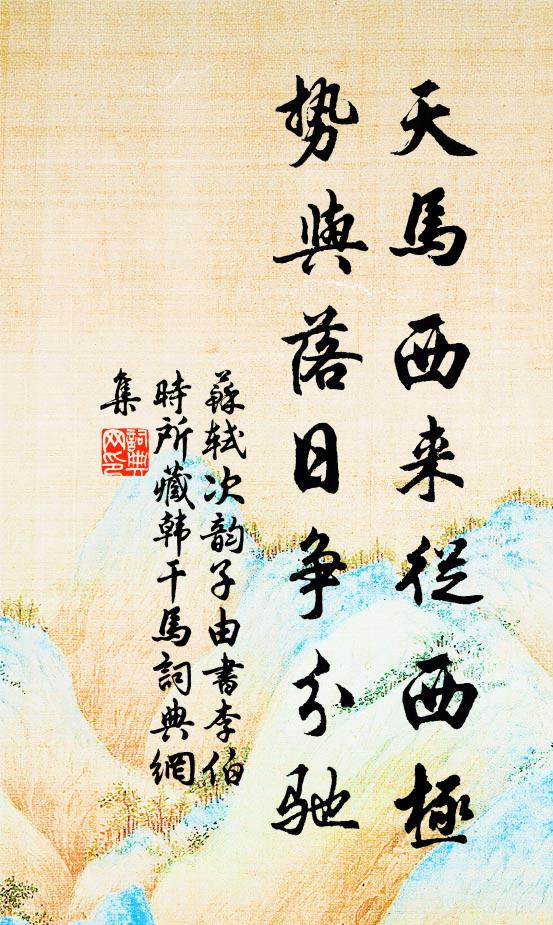 天馬西来從西極
势與落日争分馳
蘇軾次韵子由書李伯
時所藏韩干馬詞典網
集
詞典网印